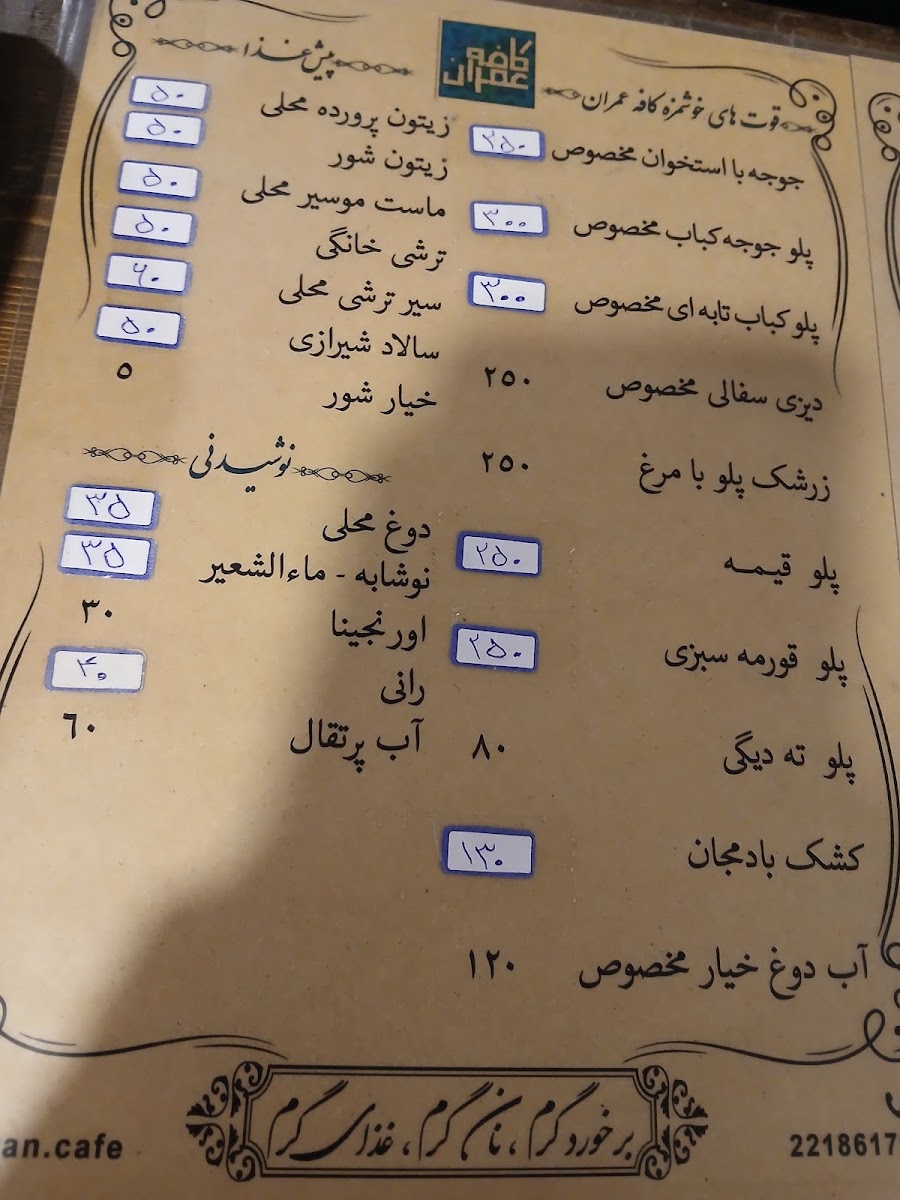 کافه عمران
قوت های خوشمزه کافه عمران
جوجه با استخوان مخصوص ۳۵۰
پلو جوجه کباب مخصوص ۳۰۰
پلو کباب تابه ای مخصوص ۳۰۰
دیزی سفالی مخصوص ۲۵۰
زرشک پلو با مرغ ۲۵۰
پلو قیمه ۲۵۰
پلو قورمه سبزی ۲۵۰
پلو ته دیگی ۸۰
کشک بادمجان ۱۳۰
آب دوغ خیار مخصوص ۱۲۰
پیش غذا
زیتون پرورده محلی ۵۰
زیتون شور ۵۰
ماست موسیر محلی ۵۰
ترشی خانگی ۵۰
سیر ترشی محلی ۶۰
سالاد شیرازی ۵۰
خیار شور ۵
نوشیدنی
دوغ محلی ۳۵
نوشابه - ماءالشعیر ۳۵
اورنجینا ۳۰
رانی ۴۰
آب پرتقال ۶۰
برخورد گرم، نان گرم، غذای گرم
an.cafe
2218617